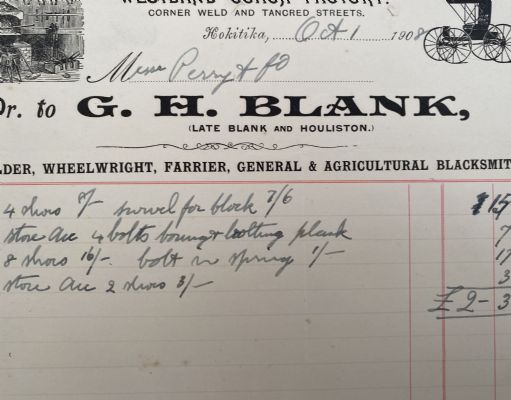 WESTLAND COACH FACTORY.
CORNER WELD AND TANCRED STREETS.
Hokitika, Oct 1 1908
Messrs Perry & Co
Dr. to G. H. BLANK,
(LATE BLANK AND HOULISTON.)
LDER, WHEELWRIGHT, FARRIER, GENERAL & AGRICULTURAL BLACKSMIT
4 shoes 8/- swivel for block 7/6 15
store Acc 4 bolts boring & bolting plank 7
8 shoes 16/- bolt in spring 1/- 17
store Acc 2 shoes 3/- 3
£2-3